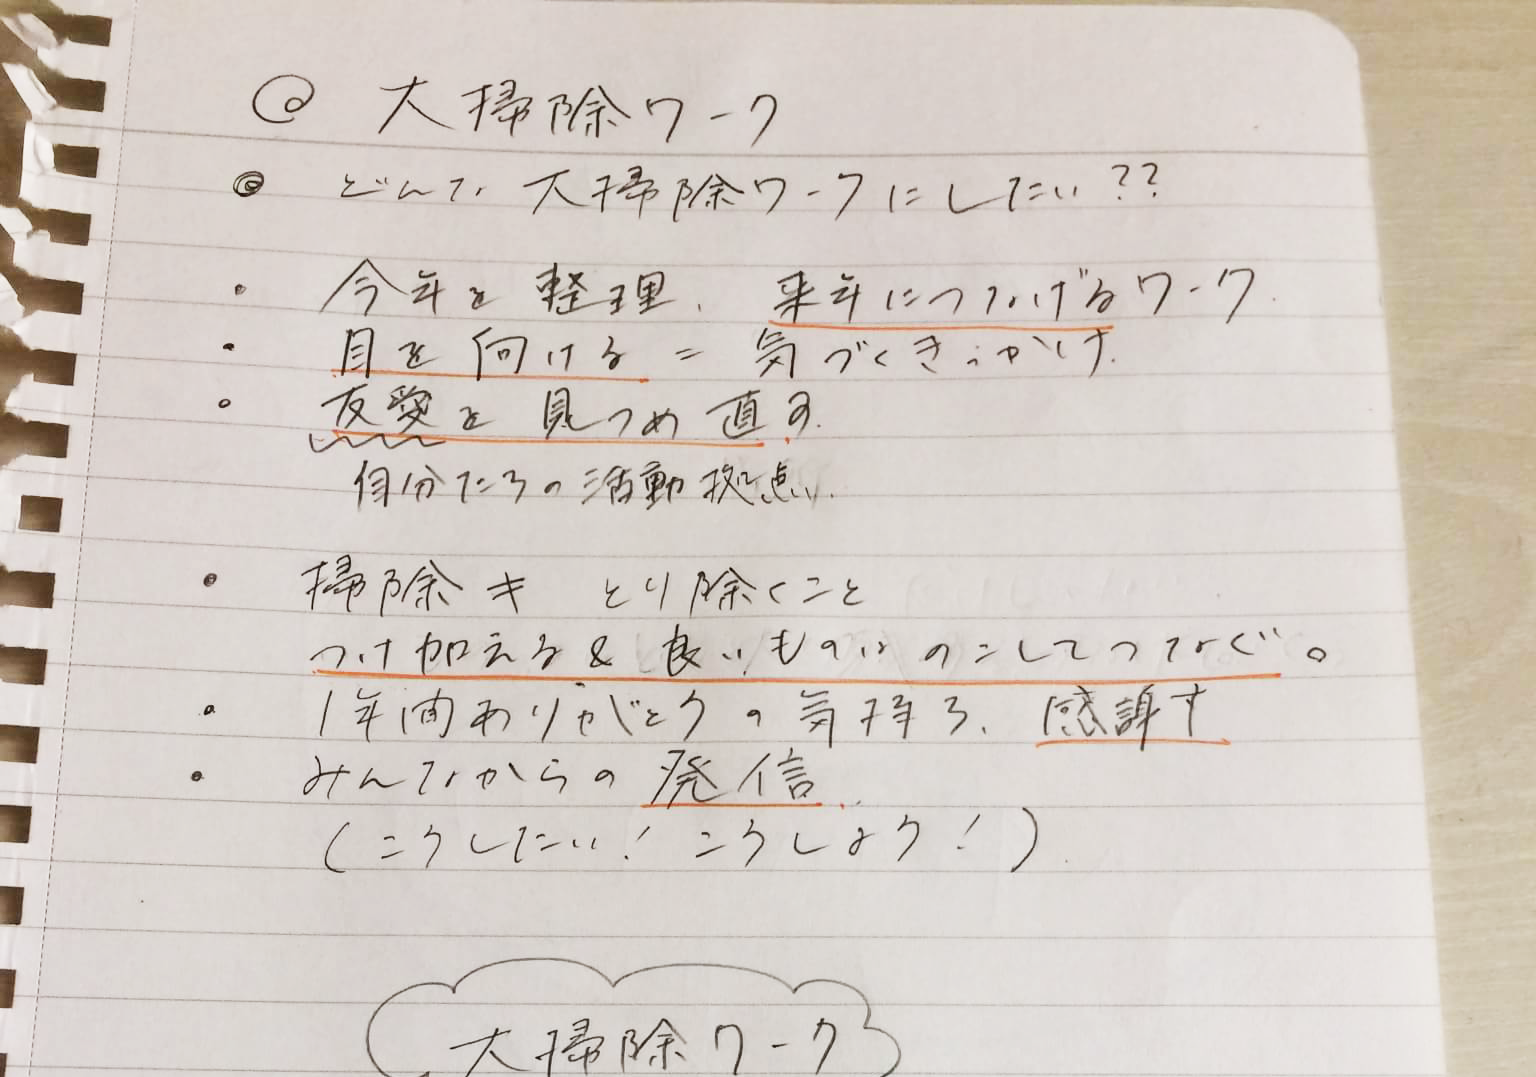 ◎ 大掃除ワーク
◎ どんな大掃除ワークにしたい??
・ 今年を整理、来年につなげるワーク.
・ 目を向ける = 気づくきっかけ.
・ 友愛を見つめ直す.
自分たちの活動拠点.
・ 掃除≠とり除くこと
つけ加える&良いものはのこしてつなぐ。
・ 1年間ありがとうの気持ち、感謝す
・ みんなからの発信.
(こうしたい! こうしよう!).
大掃除ワーク